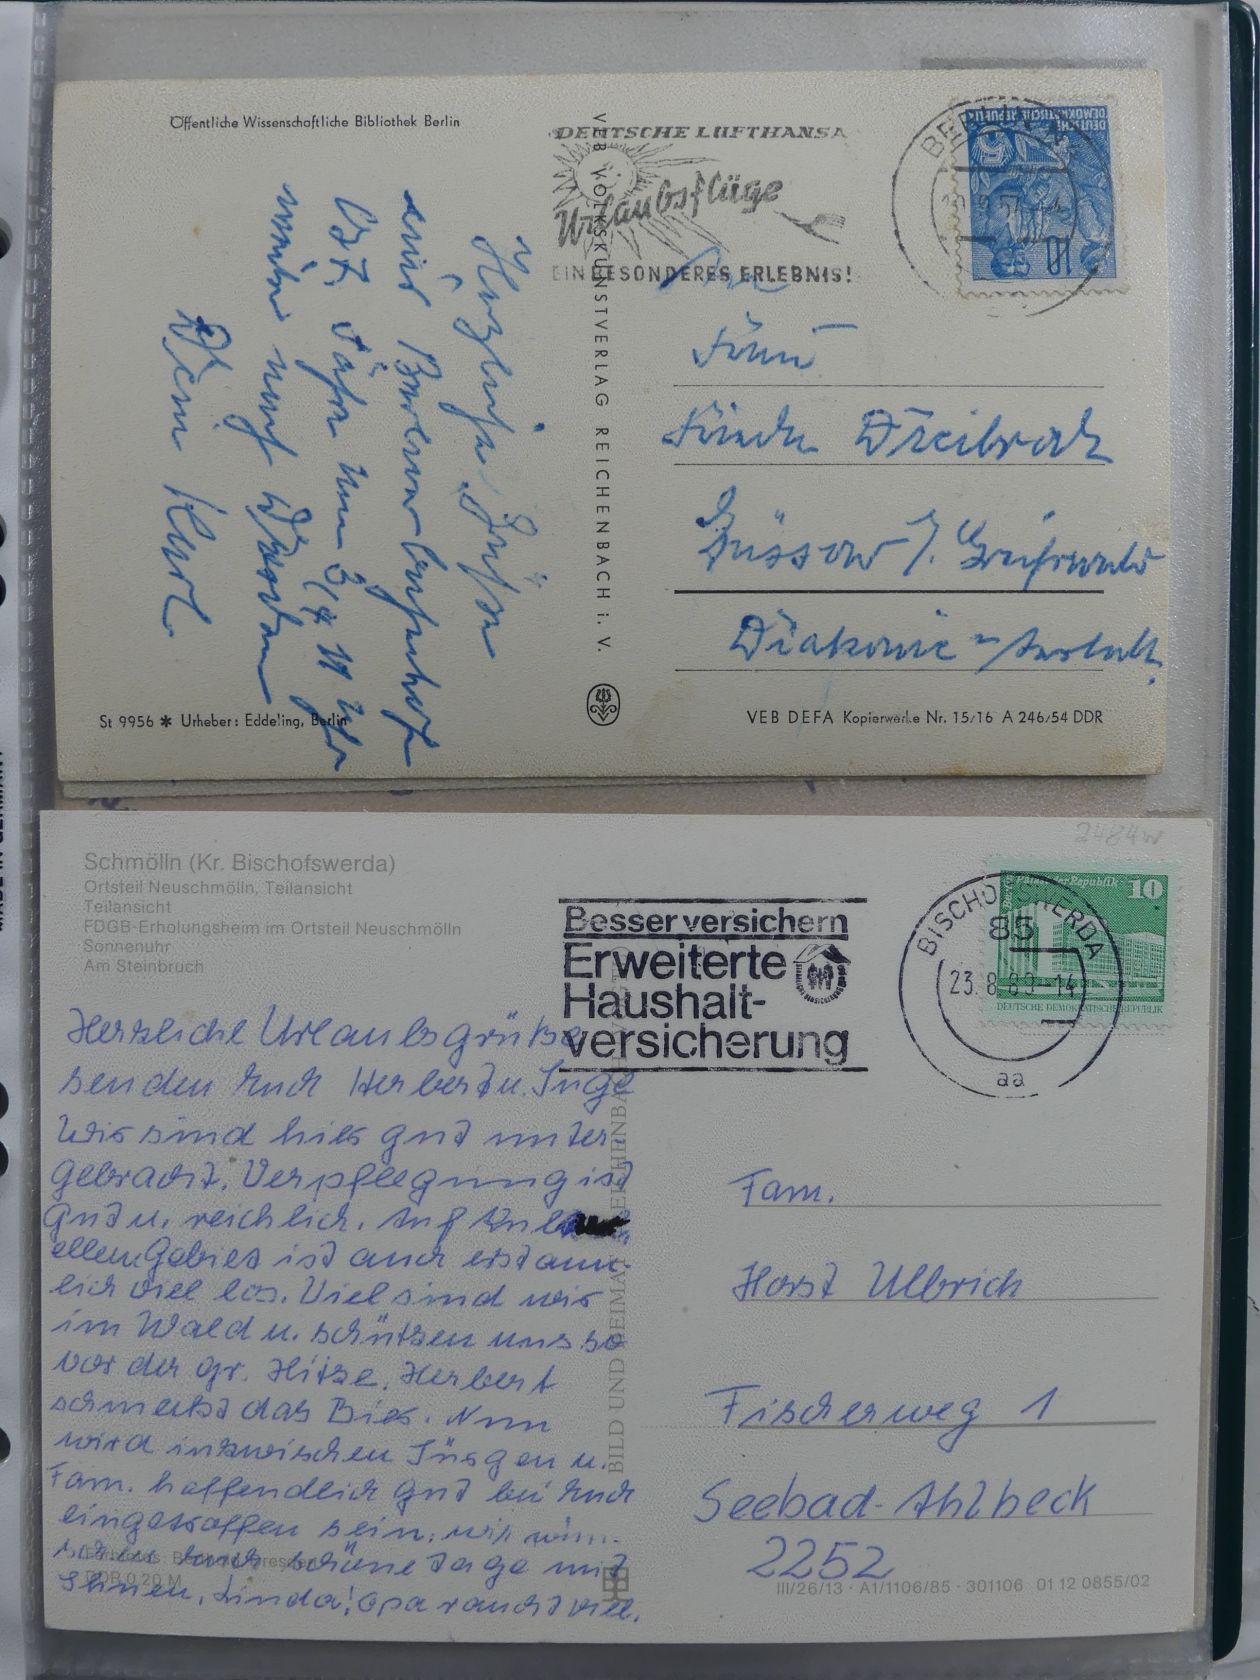 Öffentliche Wissenschaftliche Bibliothek Berlin
DEUTSCHE LUFTHANSA
Urlaubsflüge
EIN BESONDERES ERLEBNIS!
DEUTSCHE
DEMOKRATISCHE REPUBLIK
10
VEB VOLKSKUNSTVERLAG REICHENBACH i. V.
Herzliche Grüße
vom Berliner Bahnhof
Ost. Fahre um
weiter nach Dresden
Dein Karl
Frau
Dreibrodt
Güssow b. Greifswald
Diakonie-Anstalt
St 9956 * Urheber: Eddeling, Berlin
VEB DEFA Kopierwerke Nr. 15/16 A 246/54 DDR
2484w
Schmölln (Kr. Bischofswerda)
Ortsteil Neuschmölln, Teilansicht
Teilansicht
FDGB-Erholungsheim im Ortsteil Neuschmölln
Sonnenuhr
Am Steinbruch
Besser versichern
Erweiterte
Haushalt-
versicherung
BISCHOFSWERDA
85
23.8.89-14
aa
10
DEUTSCHE DEMOKRATISCHE REPUBLIK
Herzliche Urlaubsgrüße
senden Euch Herbert u. Inge
Wir sind hier gut unter
gebracht. Verpflegung ist
gut u. reichlich. Auf kultu
ellem Gebiet ist auch erstaun-
lich viel los. Viel sind wir
im Wald u. schützen uns so
vor der gr. Hitze. Herbert
schmeckt das Bier. Nun
wird inzwischen Jürgen u.
Fam. hoffendlich gut bei Euch
eingetroffen sein, wir wün-
schen Euch schöne Tage mit
Ihnen. Linda! Opa raucht viel.
BILD UND HEIMAT REICHENBACH
DDR 0,20 M
Fam.
Horst Ulbrich
Fischerweg 1
Seebad-Ahlbeck
2252
III/26/13 · A1/1106/85 · 301106 01 12 0855/02